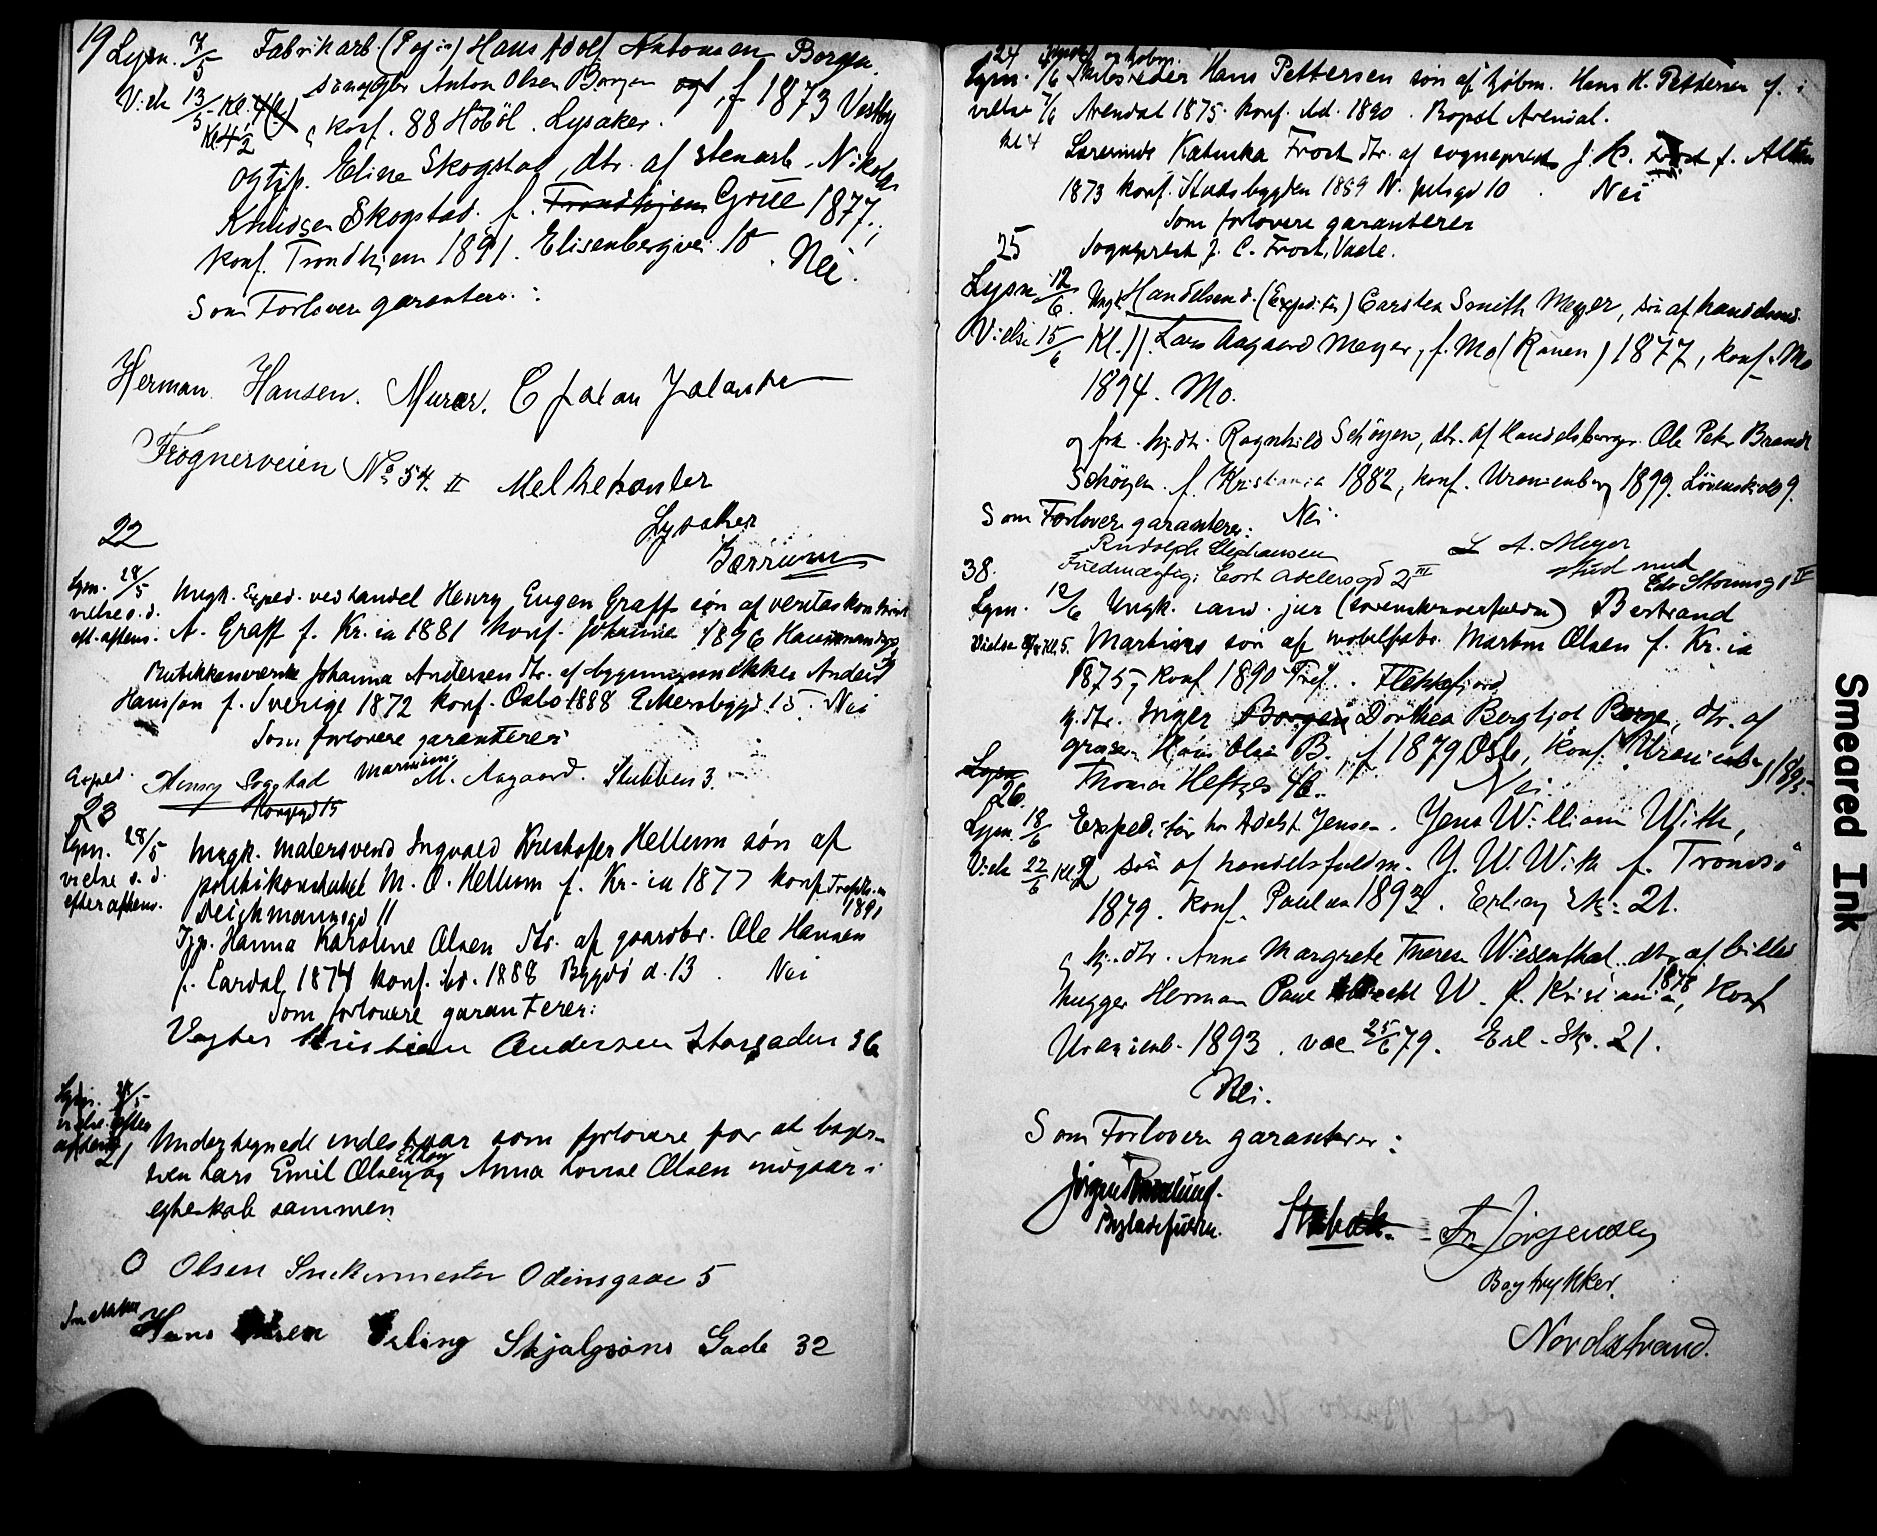 19 Lysn. 7/5 Fabrikarb. (Papir) Hans Adolf Antonsen Borgen.
Vielse 13/5 Kl. 4½ søn af gbr Anton Olsen Borgen ogt, f. 1873 Vestby
konf. 88 Høbøl. Lysaker.
og tjp. Eline Skogstad, dtr. af stenarb. Nikolai
Knudsen Skogstad. f. Trondhjem Grue 1877;
konf. Trondhjem 1891. Elisenbergvei 10. Nei.
Som Forlovere garanterer:
Herman Hansen. Murer.
Frognerveien No 54 II Melhekonter
Lysaker
Bærrum
22
Lysn. 28/5 Ungk. Exped. ved handel Henry Eugen Graff søn af
vielse s. d. eft. aftens. A. Graff f. Kr.ia 1881 konf. Johannes 1896
Johanna Andersen dtr. af bygningssnekker Anders
Hansson f. Sverige 1872 konf. Oslo 1888 Ekersbggd 15. Nei
Som forlovere garanterer
Exped. Henry Sogstad M. Aagaard. Stubben 3.
Korsgd 15
23
Lysn. 28/5 Ungk. malersvend Ingvald Kristofer Hellum søn af
vielse s. d. politikonstabel M. O. Hellum f. Kr.ia 1877 konf. Trefoldh. 1891
efter aftens. Deichmannsgd 11
Tjp. Hanna Karoline Olsen dtr. af gaardbr. Ole Hansen
f. Lardal 1874 konf. ibd. 1888 Bygdø a. 13. Nei
Som forlovere garanterer:
Vegter Kristian Andersen Storgaden 36
Lysn. 28/5
vielse efter
aftens
21 Undertegnede indestaar som forlovere for at bager-
svend Lars Emil Olsen og Anna Lovise Olsen indgaar i
egteskab sammen
O Olsen Snekermester Odinsgade 5
Snekker Hans Olsen Erling Skjalgsøns Gade 32
24
Lysn. 1/6 Skibsreder Hans Pettersen søn af kjøbm. Hans H. Pettersen f. i
vielse 7/6 Arendal 1875. konf. ibd. 1890. Bopæl Arendal.
kl 4 Lærerinde Katinka Frost dtr. af sogneprest J. C. Frost f. Alten
1873 konf. Stadsbygden 1889 N. Juelsgd 10. Nei
Som forlovere garanterer
Sogneprest J. C. Frost, Vaale.
25
Lysn. 12/6. Ungk. Handelsmd. (Expeditør) Carsten Smith Meyer, søn af handelsmd.
Vielse 15/6 Kl. 11. Lars Aagaard Meyer, f. Mo (Ranen) 1877, konf. Mo
1894. Mo.
og frk. hj. dtr. Ragnhild Schøyen, dtr. af Handelsborger Ole Peter Brandt
Schøyen. f. Kristiania 1882, konf. Uranienborg 1899. Løvenskiolds 9.
Som Forlovere garanterer: Nei.
Rudolph Stephansen L A. Meyer
Fuldmægtig, Cort Adelersgd 2 III stud med
38. Edv Stormsg 1 V
Lysn. 12/6 Ungk. cand. jur (sorenskriverfuldm) Bertrand
Vielse Kl. 5. Martinus søn af møbelfabr. Martin Olsen f. Kr.ia
1875, konf 1890 Tref. Flekkefjord
hj. dtr. Inger Borgen Dorthea Bergljot Borge, dtr. af
Hans Olsen B., f 1879 Oslo, konf. Uranienborg 1895.
Lysn Thomas Heftyes 46. Nei.
26.
Lysn. 18/6 Expeditør hr Adolf Jensen. Jens William With,
Vielse 22/6 kl 2 søn af handelsfuldm. J. W. With f. Tromsø
1879. konf. Paulus 1893. Erling Sk: 21.
og hj. dtr. Anna Margrete Therese Wiesenthal, dtr. af billed-
hugger Herman Paul Albrecht W. f. Kristiania 1878, konf
Uranienb. 1893. vac 25/6 79. Erl. Sk. 21.
Nei.
Som Forlovere garanterer:
Stabæk. Fr. Jørgensen
Bogtrykker.
Nordstrand.
Smeared Ink